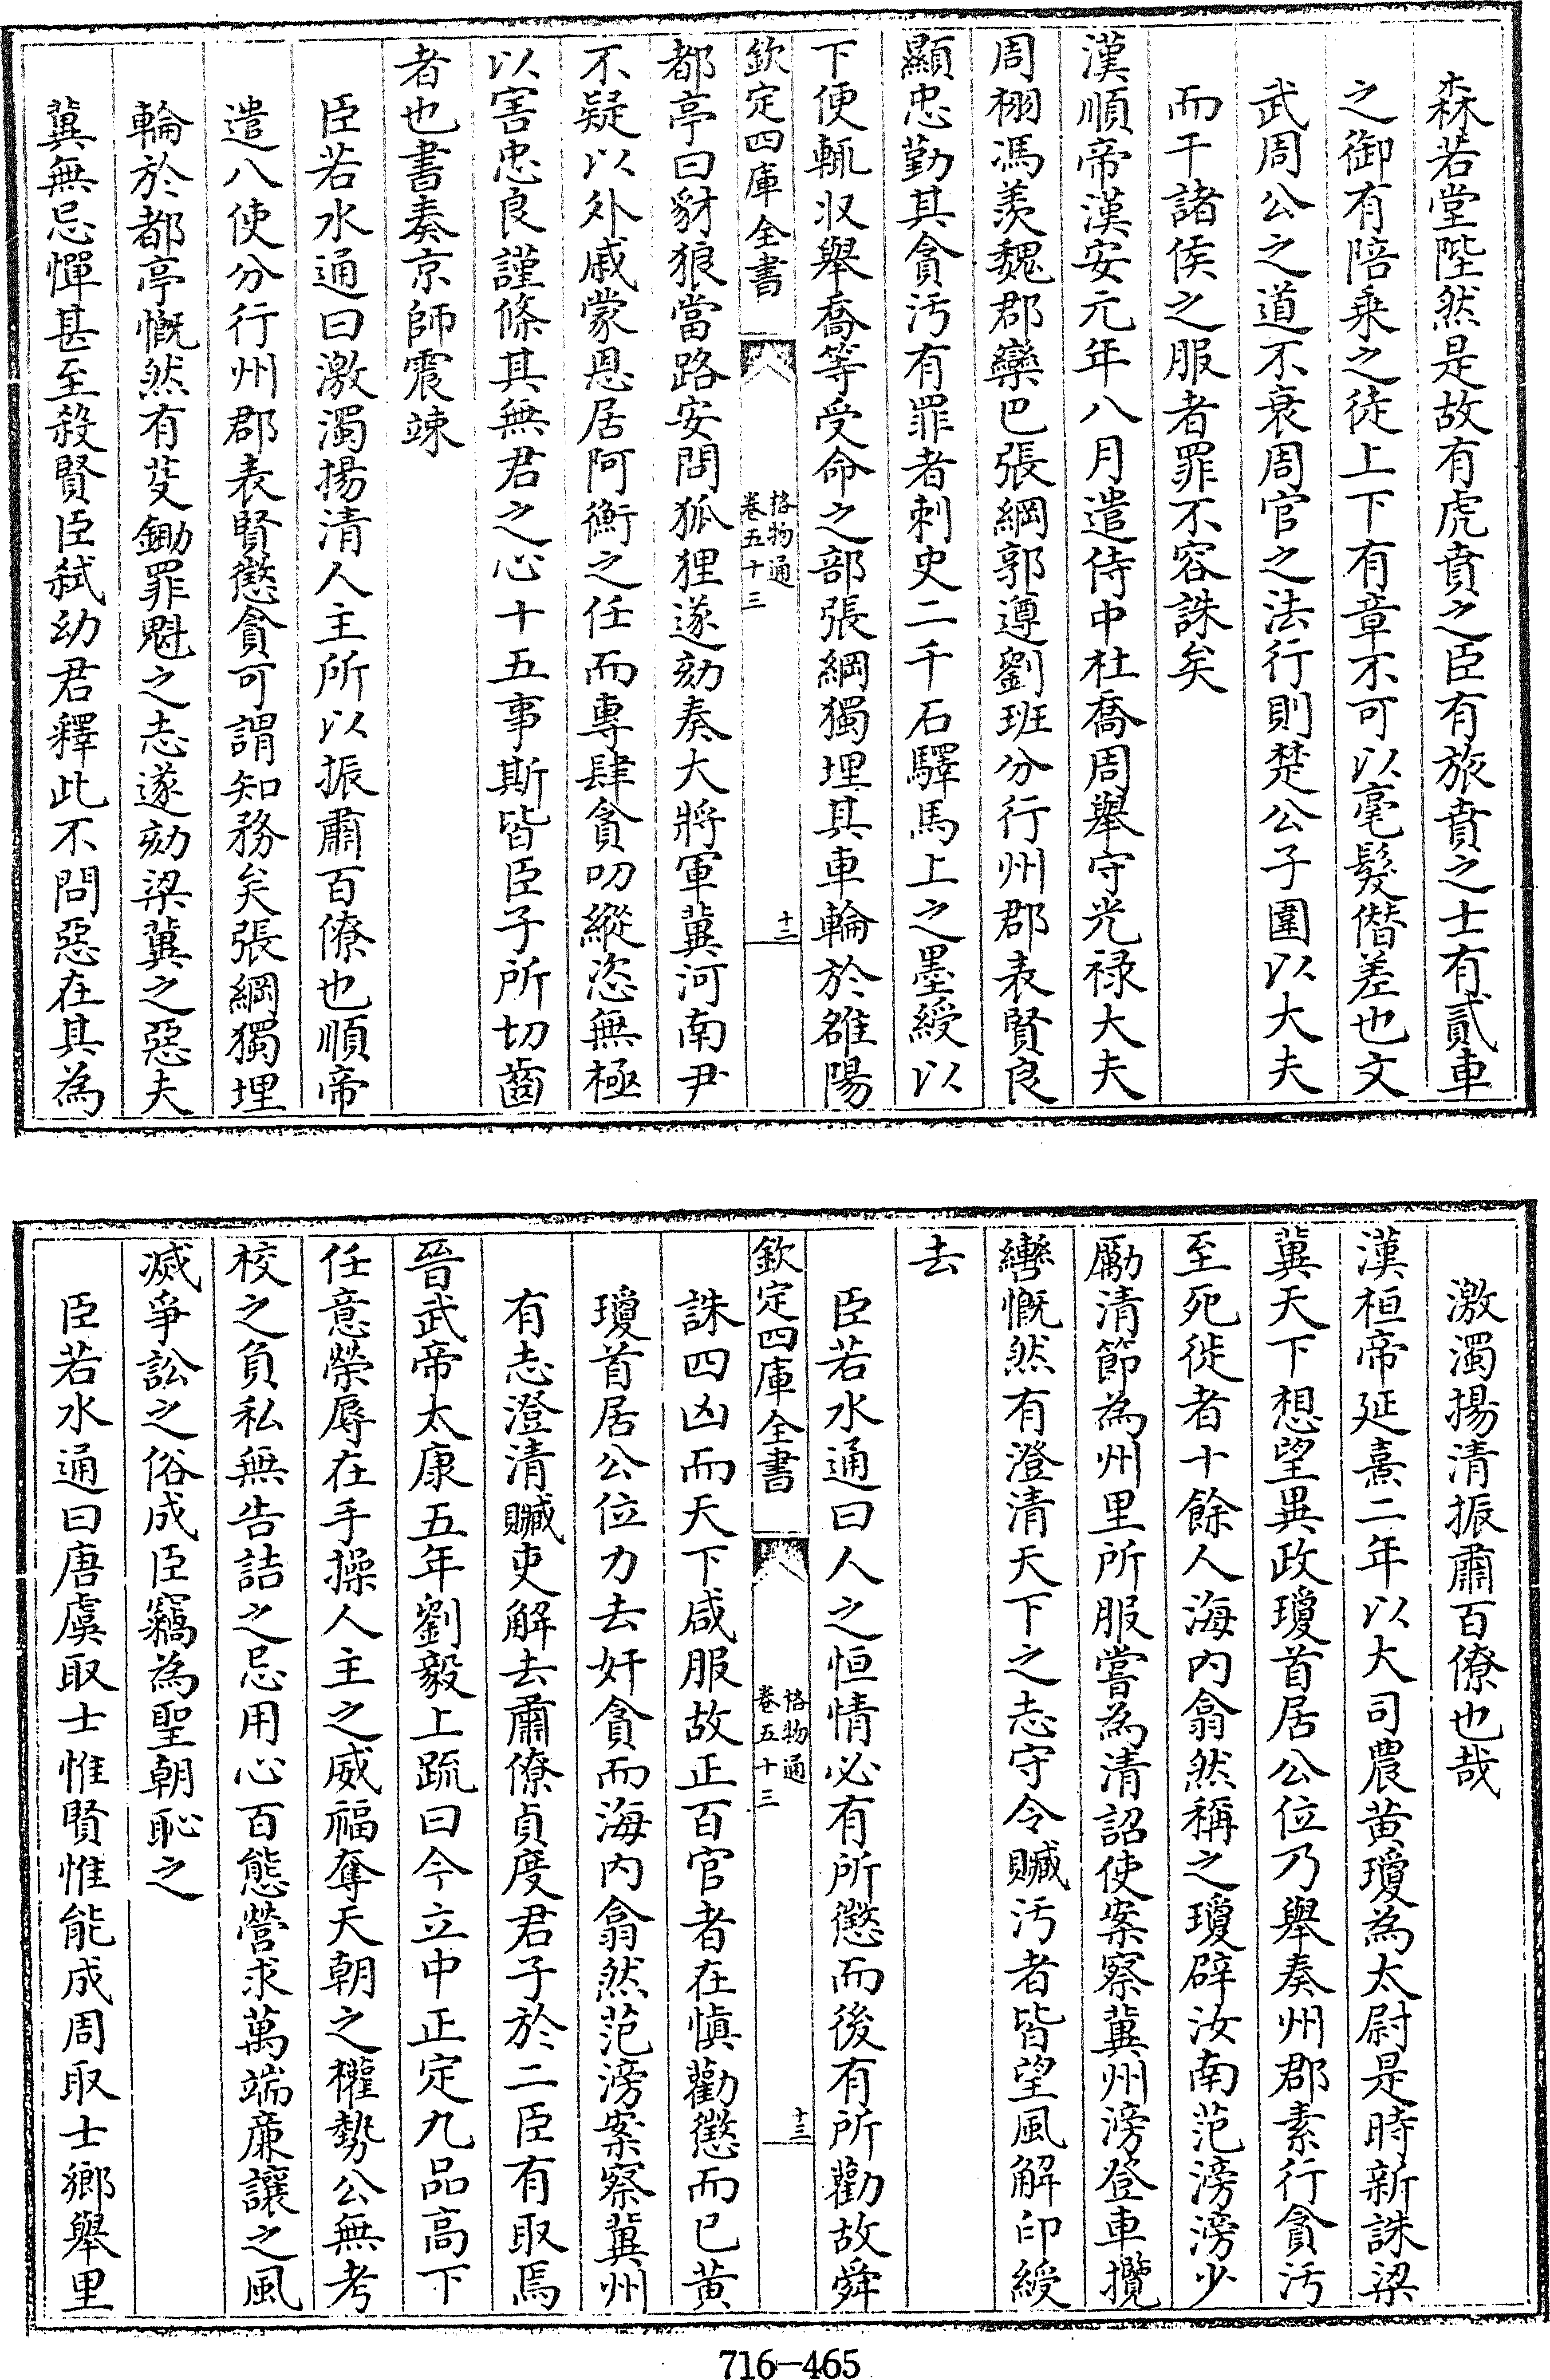 森若堂陛然是故有虎賁之臣有旅賁之士有貳車
之御有陪乗之徒上下有章不可以毫髮僭差也文
武周公之道不衰周官之法行則楚公子圍以大夫
而干諸侯之服者罪不容誅矣
漢順帝漢安元年八月遣侍中杜喬周舉守光禄大夫
周栩馮羨魏郡欒巴張綱郭遵劉班分行州郡表賢良
顯忠勤其貪汚有罪者刺史二千石驛馬上之墨綬以
下便輒収舉喬等受命之部張綱獨埋其車輪於雒陽
欽定四庫全書
格物通
卷五十三
十二
都亭曰豺狼當路安問狐狸遂劾奏大將軍冀河南尹
不疑以外戚蒙恩居阿衡之任而専肆貪叨縱恣無極
以害忠良謹條其無君之心十五事斯皆臣子所切齒
者也書奏京師震竦
臣若水通曰激濁揚清人主所以振肅百僚也順帝
遣八使分行州郡表賢懲貪可謂知務矣張綱獨埋
輪於都亭慨然有芟鋤罪魁之志遂劾梁冀之惡夫
冀無忌憚甚至殺賢臣弑幼君釋此不問惡在其為
激濁揚清振肅百僚也哉
漢桓帝延熹二年以大司農黄瓊為太尉是時新誅梁
冀天下想望異政瓊首居公位乃舉奏州郡素行貪汚
至死徙者十餘人海内翕然稱之瓊辟汝南范滂滂少
勵清節為州里所服嘗為清詔使案察冀州滂登車攬
轡慨然有澄清天下之志守令贓汚者皆望風解印綬
去
臣若水通曰人之恒情必有所懲而後有所勸故舜
欽定四庫全書
格物通
卷五十三
十三
誅四凶而天下咸服故正百官者在慎勸懲而已黄
瓊首居公位力去奸貪而海内翕然范滂案察冀州
有志澄清贓吏解去肅僚貞度君子於二臣有取焉
晉武帝太康五年劉毅上疏曰今立中正定九品高下
任意榮辱在手操人主之威福奪天朝之權勢公無考
校之負私無告詰之忌用心百態營求萬端廉讓之風
滅爭訟之俗成臣竊為聖朝恥之
臣若水通曰唐虞取士惟賢惟能成周取士鄉舉里
716-465